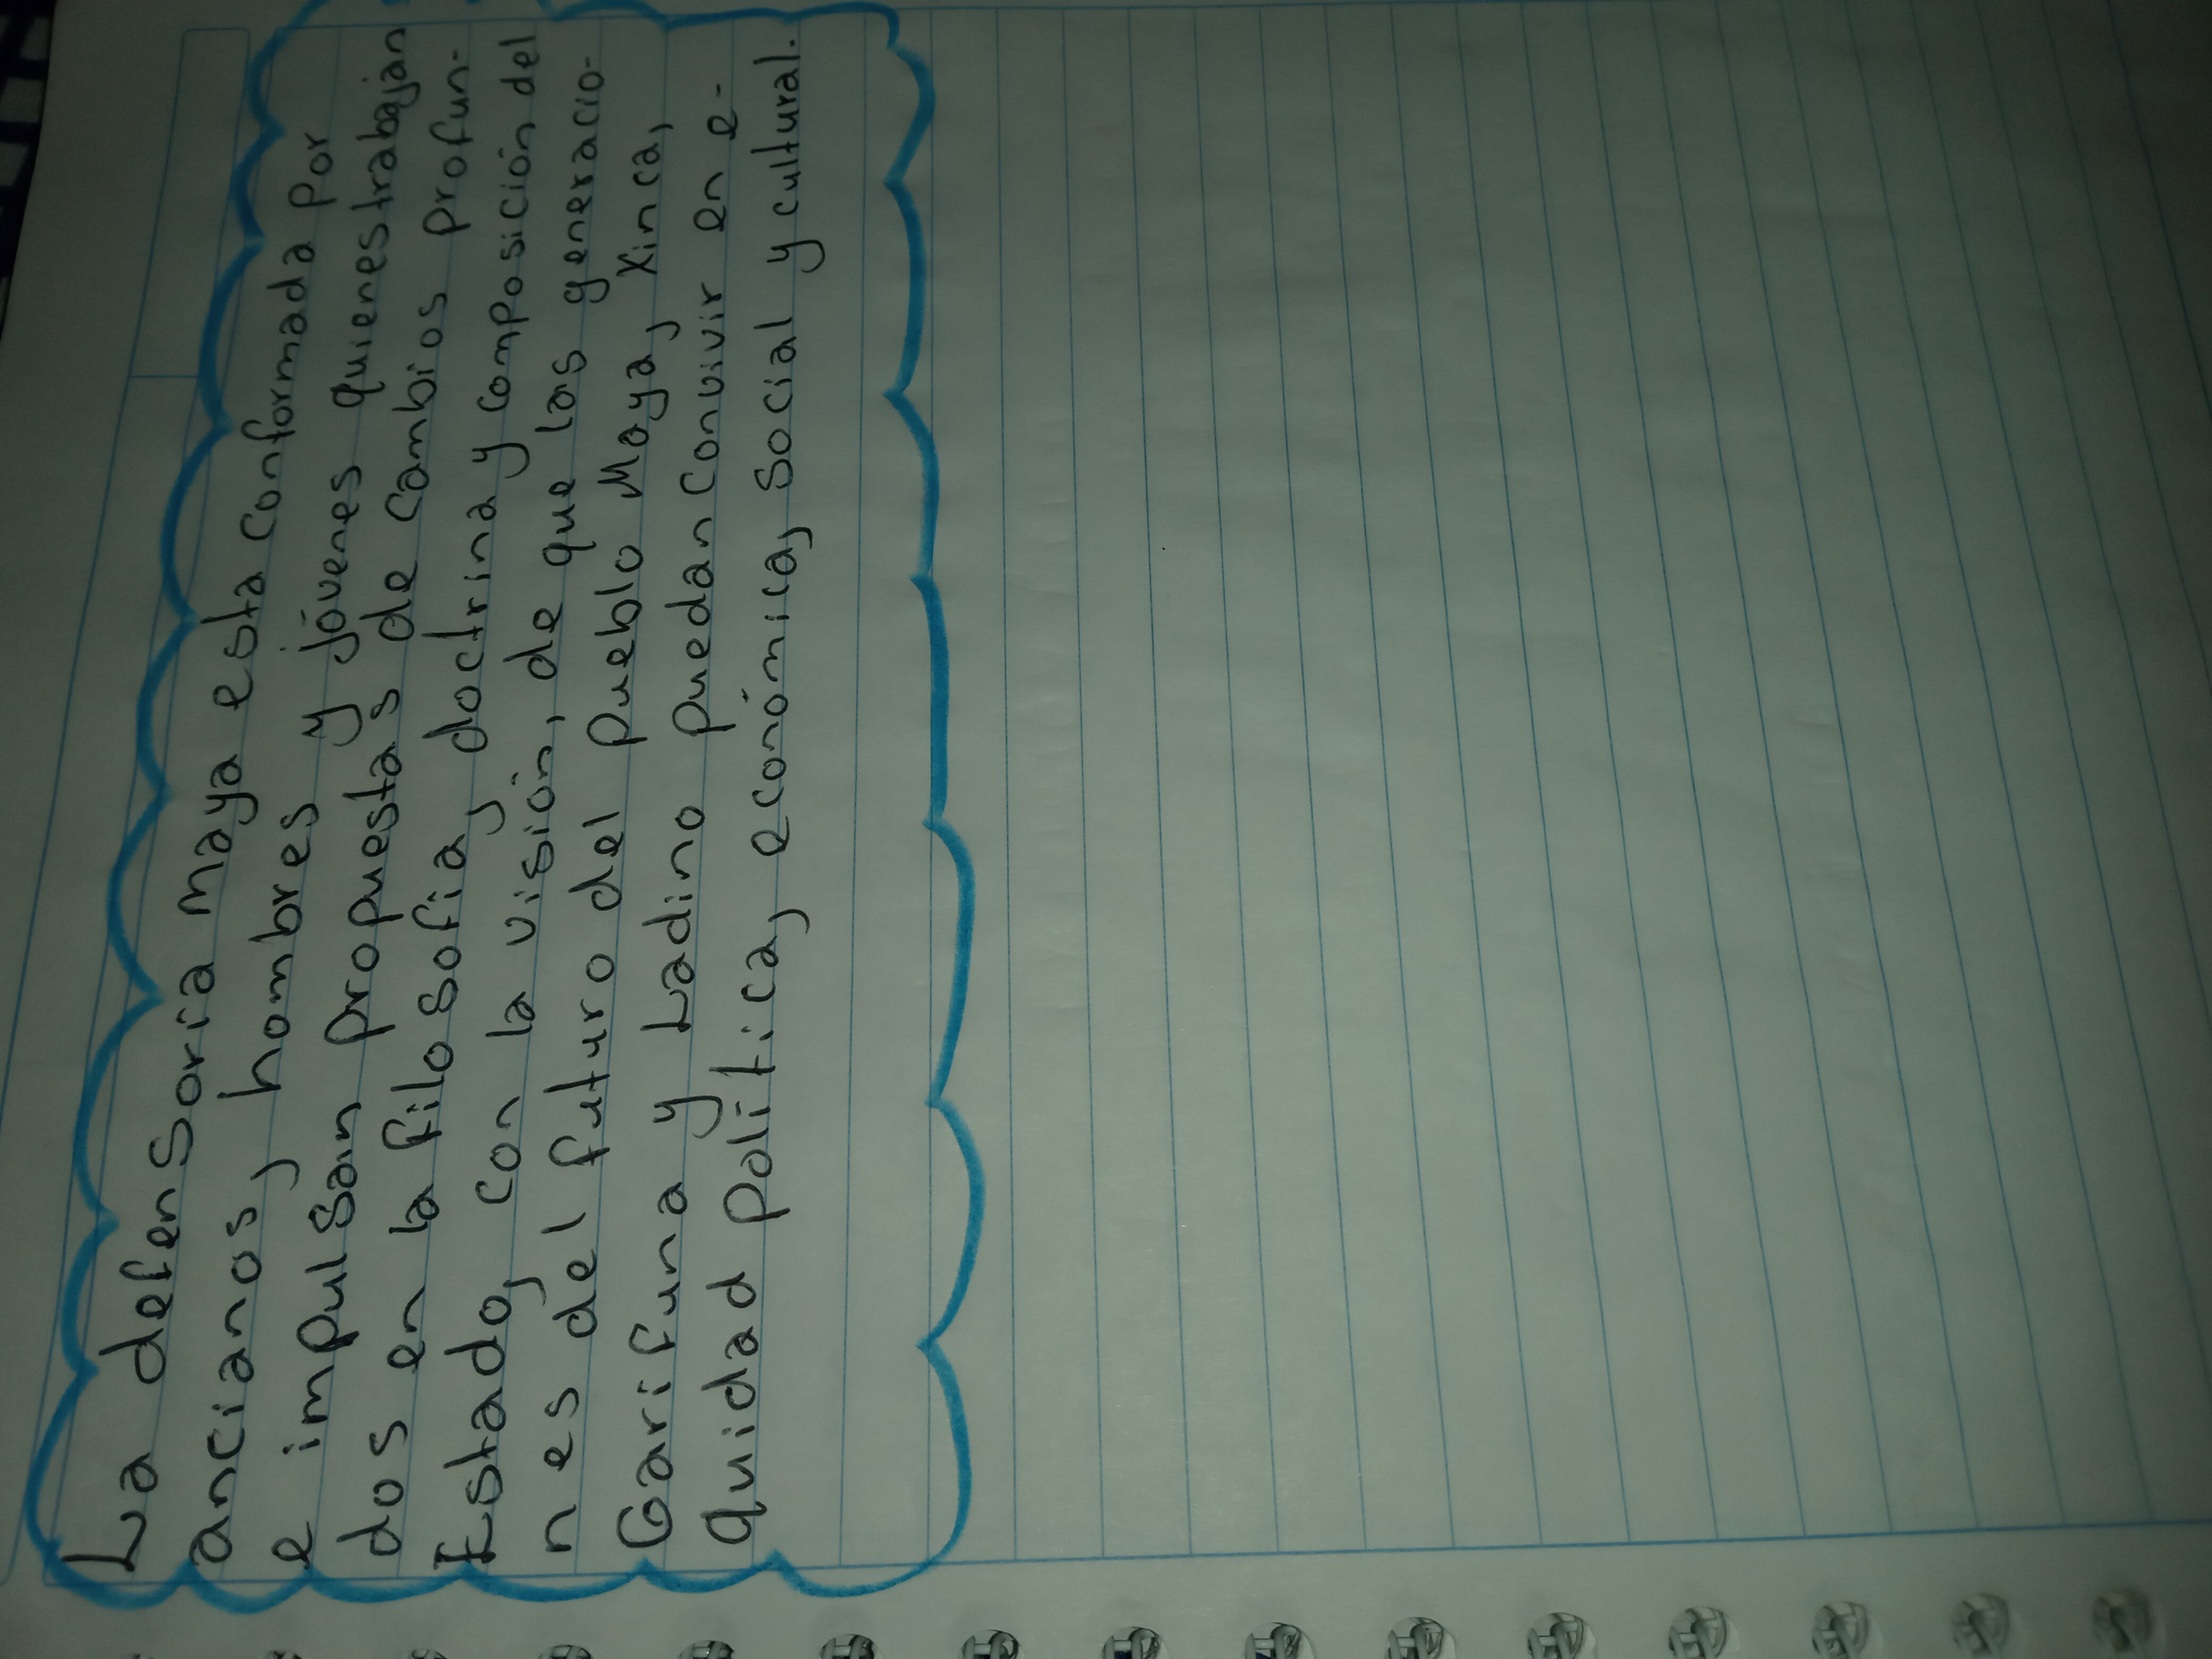 La defensoria maya esta conformada por
ancianos, hombres y jóvenes quienes trabajan
e impulsan propuestas de cambios profun-
dos en la filosofia, doctrina y composición del
Estado, con la visión, de que las generacio-
nes del futuro del pueblo Maya, Xinca,
Garifuna y Ladino puedan convivir en e-
quidad política, económica, social y cultural.